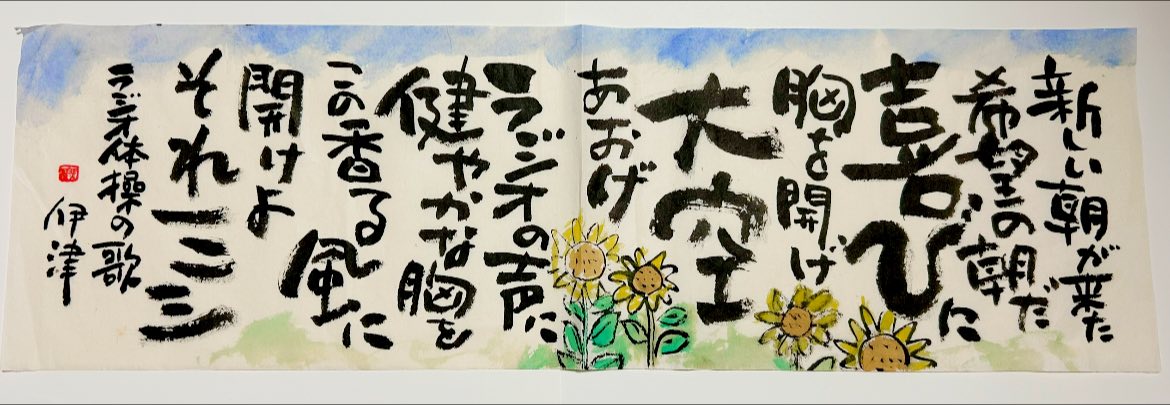 新しい朝が来た
希望の朝だ
喜びに
胸を開げ
大空
あおげ
ラジオの声に
健やかな胸を
この香る風に
開けよ
それ一二三
ラジオ体操の歌
伊津